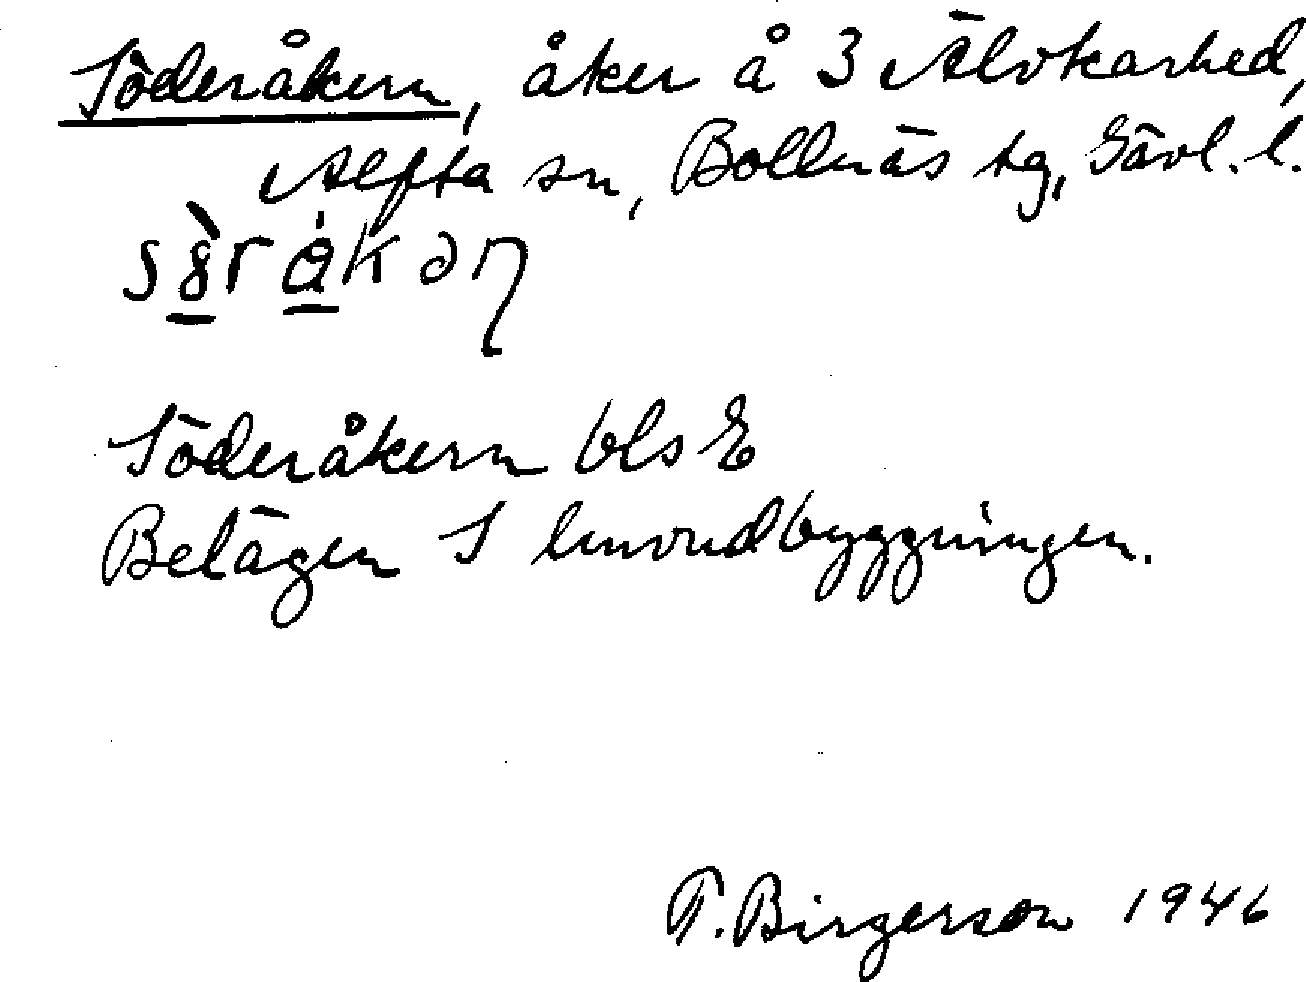 Söderåkern, åker å 3 Älvkarhed,
Alfta sn, Bollnäs tg, Gävl. l.
Söderåkern bls E
Belägen S huvudbyggningen.
T. Birgerson 1946